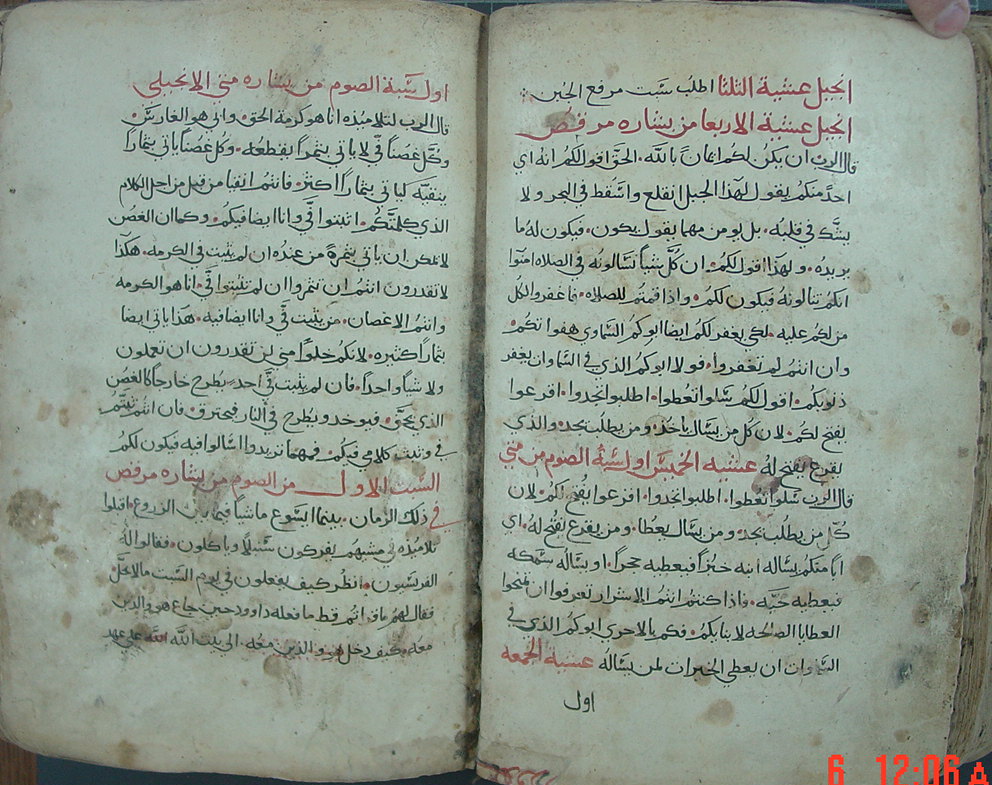 انجيل عشية الثلثا اطلب سبت مرفع الجبن
انجيل عشية الاربعا من بشاره مرقص
قال الرب ان يكن لكم ايمان بالله. الحق اقول لكم انه اي
احد منكم يقول لهذا الجبل انقلع واسقط في البحر ولا
يشك في قلبه. بل يومن مهما يقول يكون. فيكون له ما
يريده. ولهذا اقول لكم. ان كل شياً تسالونه في الصلاه امنوا
انكم تنالونه فيكون لكم. واذا قمتم للصلاه. فاغفروا لكل
من لكم عليه. لكي يغفر لكم ايضا ابوكم السماوي هفواتكم.
وان انتم لم تغفروا. فولا ابوكم الذي في السما وان يغفر
ذنوبكم. اقول لكم سلوا تعطوا. اطلبوا تجدوا. اقرعوا
يفتح لكم. لان كل من يسال ياخذ. ومن يطلب يجد. والذي
يقرع يفتح له عشيه الخميس اول سبة الصوم من متي
قال الرب سلوا تعطوا. اطلبوا تجدوا. اقرعوا يفتح لكم. لان
كل من يطلب يجد. ومن يسال يعطا. ومن يقرع يفتح له. اي
اباً منكم يساله ابنه خبزاً فيعطيه حجراً. او يساله سمكه
فيعطيه حيه. فاذا كنتم انتم الاشرار تعرفوا ان تمنحوا
العطايا الصالحه لابنايكم. فكم بالاحري ابوكم الذي في
السموات ان يعطي الخيرات لمن يساله عشية الجمعه
اول
اول سبة الصوم من بشاره متي الانجيلي
قال الرب لتلاميذه انا هو كرمة الحق. وابي هو الغارس.
وكل غصناً في لا ياتي بثمراً يقطعه. وكل غصناً ياتي بثماراً
ينقيه لياتي بثماراً اكثر. فانتم انقيا من قبل من اجل الكلام
الذي كلمتكم. اثبتوا في وانا ايضا فيكم. وكما ان الغصن
لا يمكن ان ياتي بثمرة من عنده ان لم يثبت في الكرمه. هكذا
لا تقدرون انتم ان تثمروا ان لم تثبتوا في. انا هو الكرمه
وانتم الاغصان. من يثبت في وانا ايضا فيه. هذا ياتي ايضا
بثماراً كثيره. لانكم خلواً مني لن تقدرون ان تعملون
ولا شياً واحداً. فان لم يثبت في احد يطرح خارجاً كالغصن
الذي يجف. فيوخد ويطرح في النار فيحترق. فان انتم ثبتم
في وثبت كلامي فيكم. فمهما تريدوا اسالوا فيه فيكون لكم
السبت الاول من الصوم من بشاره مرقص
في ذلك الزمان. بينما يسوع ماشياً فيما بين الزروع. اقبلوا
تلاميذه في مشيهم يفركون سنبلاً وياكلون. فقالوا له
الفريسيون. انظر كيف يفعلون في يوم السبت ما لا يحل
فقال لهم ما قراتم قط ما فعله داوود حين جاع هو والذين
معه. كيف دخل هو والذين معه. الي بيت الله علي عهد